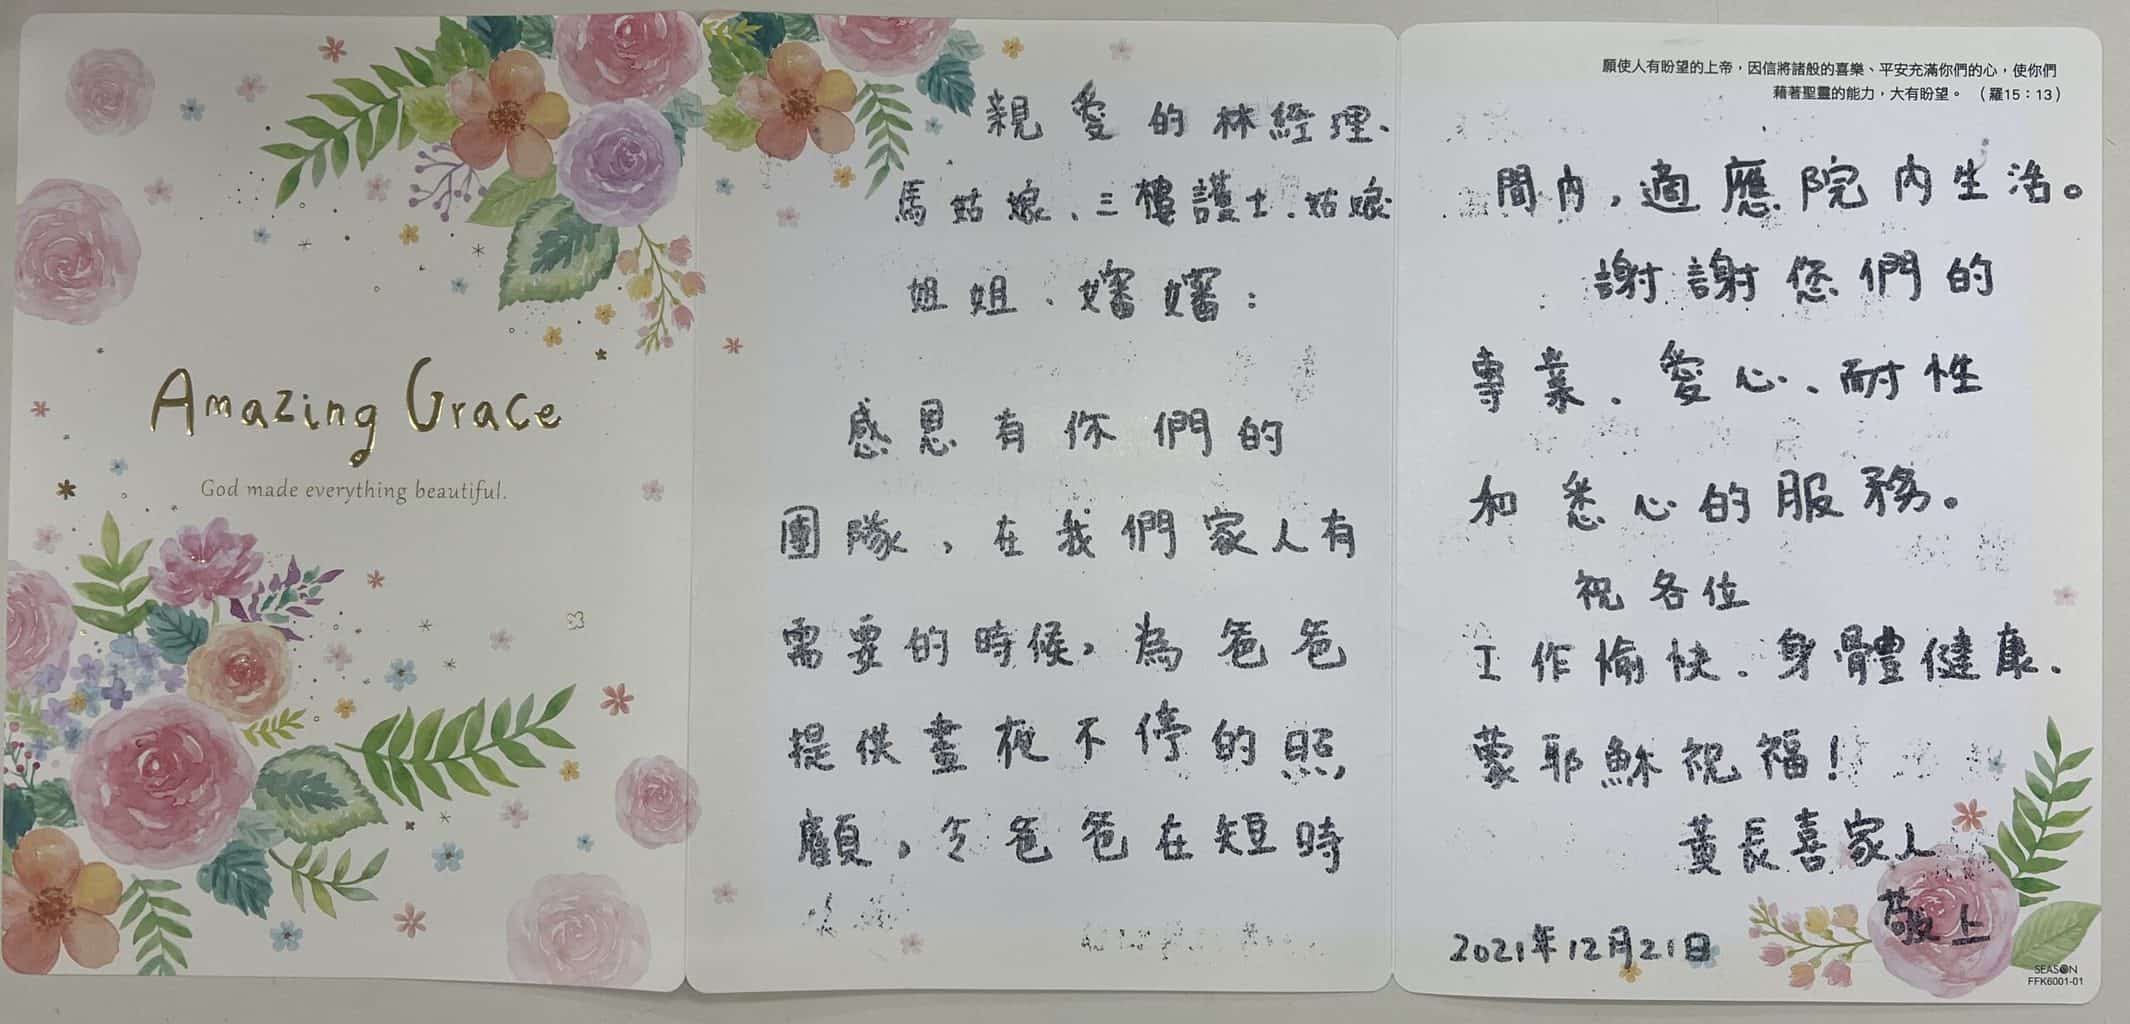 Amazing Grace
God made everything beautiful.
親愛的林經理、
馬姑娘、三樓護士、姑娘
姐姐、嬸嬸：
感恩有你們的
團隊，在我們家人有
需要的時候，為爸爸
提供晝夜不停的照
顧，令爸爸在短時
願使人有盼望的上帝，因信將諸般的喜樂、平安充滿你們的心，使你們
藉著聖靈的能力，大有盼望。（羅15：13）
間內，適應院內生活。
謝謝您們的
專業、愛心、耐性
和悉心的服務。
祝各位
工作愉快、身體健康、
蒙耶穌祝福！
黃長喜家人
敬上
2021年12月21日
SEASON
FFK6001-01